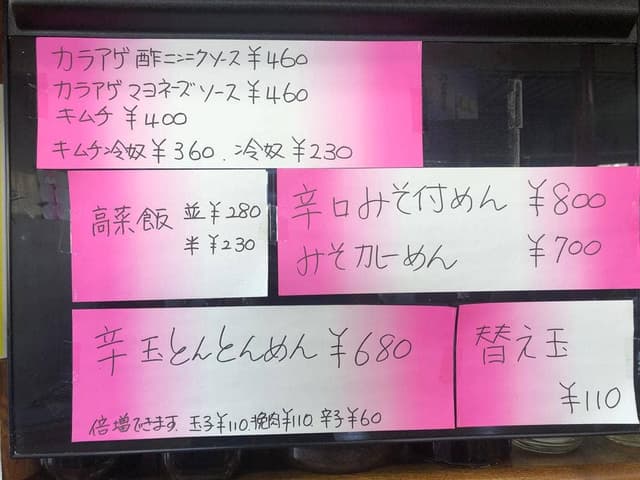 カラアゲ酢ニンニクソース ¥460
カラアゲマヨネーズソース ¥460
キムチ ¥400
キムチ冷奴 ¥360. 冷奴 ¥230
高菜飯 並 ¥280
半 ¥230
辛口みそ付めん ¥800
みそカレーめん ¥700
辛玉とんとんめん ¥680
倍増できます 玉子¥110.挽肉¥110.辛子¥60
替え玉
¥110